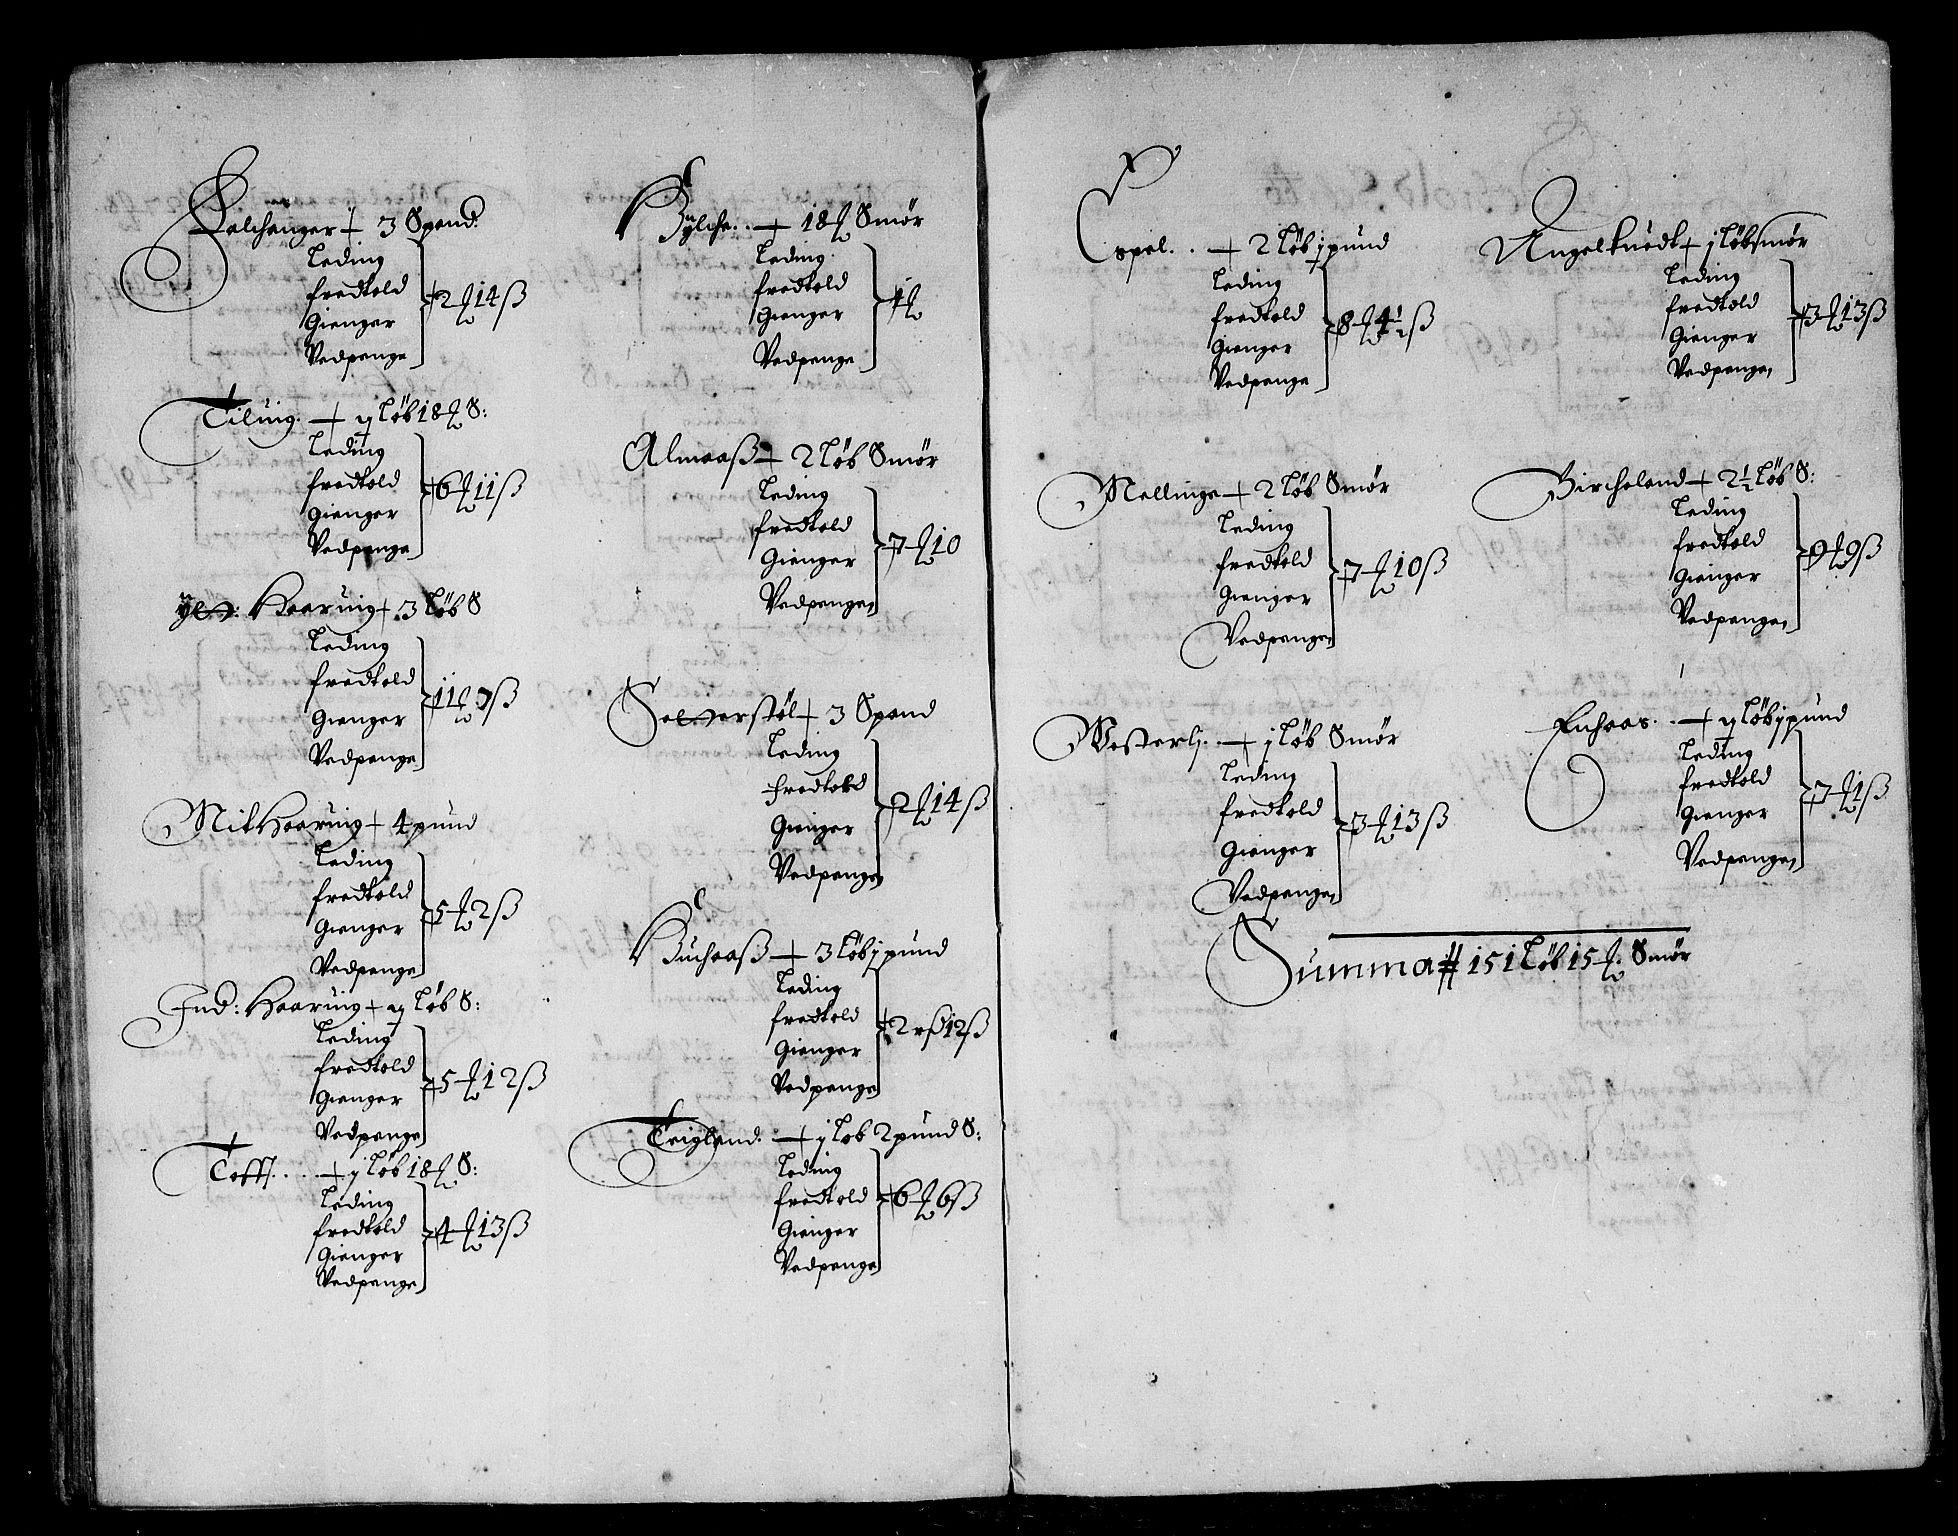 Salchanger + 3 Spand
Leding
fredtold
Gienger
Vedpenge
2 ℔ 14 ß
Tiluig. + y Løb 18 ℔ S:
Leding
fredtold
Gienger
Vedpenge
6 ℔ 11 ß
Haaruig + 3 Løb S
Leding
fredtold
Gienger
Vedpenge
11 ℔ 7 ß
Mit Haaruig + 4 pund
Leding
fredtold
Gienger
Vedpenge
5 ℔ 2 ß
Ind: Haaruig + y Løb S:
Leding
fredtold
Gienger
Vedpenge
5 ℔ 12 ß
Tofft. . . + j Løb 18 ℔ S:
Leding
fredtold
Gienger
Vedpenge
4 ℔ 13 ß
+ 18 ℔ Smør
Leding
fredtold
Gienger
Vedpenge
Almaaß + 2 Løb Smør
Leding
fredtold
Gienger
Vedpenge
7 ℔ 10
+ 3 Spand
Leding
fredtold
Gienger
Vedpenge
2 ℔ 14 ß
Huchaaß + 3 Løb j pund
Leding
fredtold
Gienger
Vedpenge
12 ß
Teigland. + y Løb 2 pund S:
Leding
fredtold
Gienger
Vedpenge
6 ℔ 6 ß
Espel. . + 2 Løb j pund
Leding
fredtold
Gienger
Vedpenge
8 ℔ 4½ ß
Mellinge + 2 Løb Smør
Leding
fredtold
Gienger
Vedpenge
7 ℔ 10 ß
Westerlj. + j Løb Smør
Leding
fredtold
Gienger
Vedpenge
3 ℔ 13 ß
Angeltuedt + j Løb smør
Leding
fredtold
Gienger
Vedpenge
3 ℔ 13 ß
Bircheland + 2½ Løb S:
Leding
fredtold
Gienger
Vedpenge
9 ℔ 9 ß
Enhaas. . + y Løb j pund
Leding
fredtold
Gienger
Vedpenge
7 ℔ 1 ß
Summa # 151 Løb 15 ℔ Smør